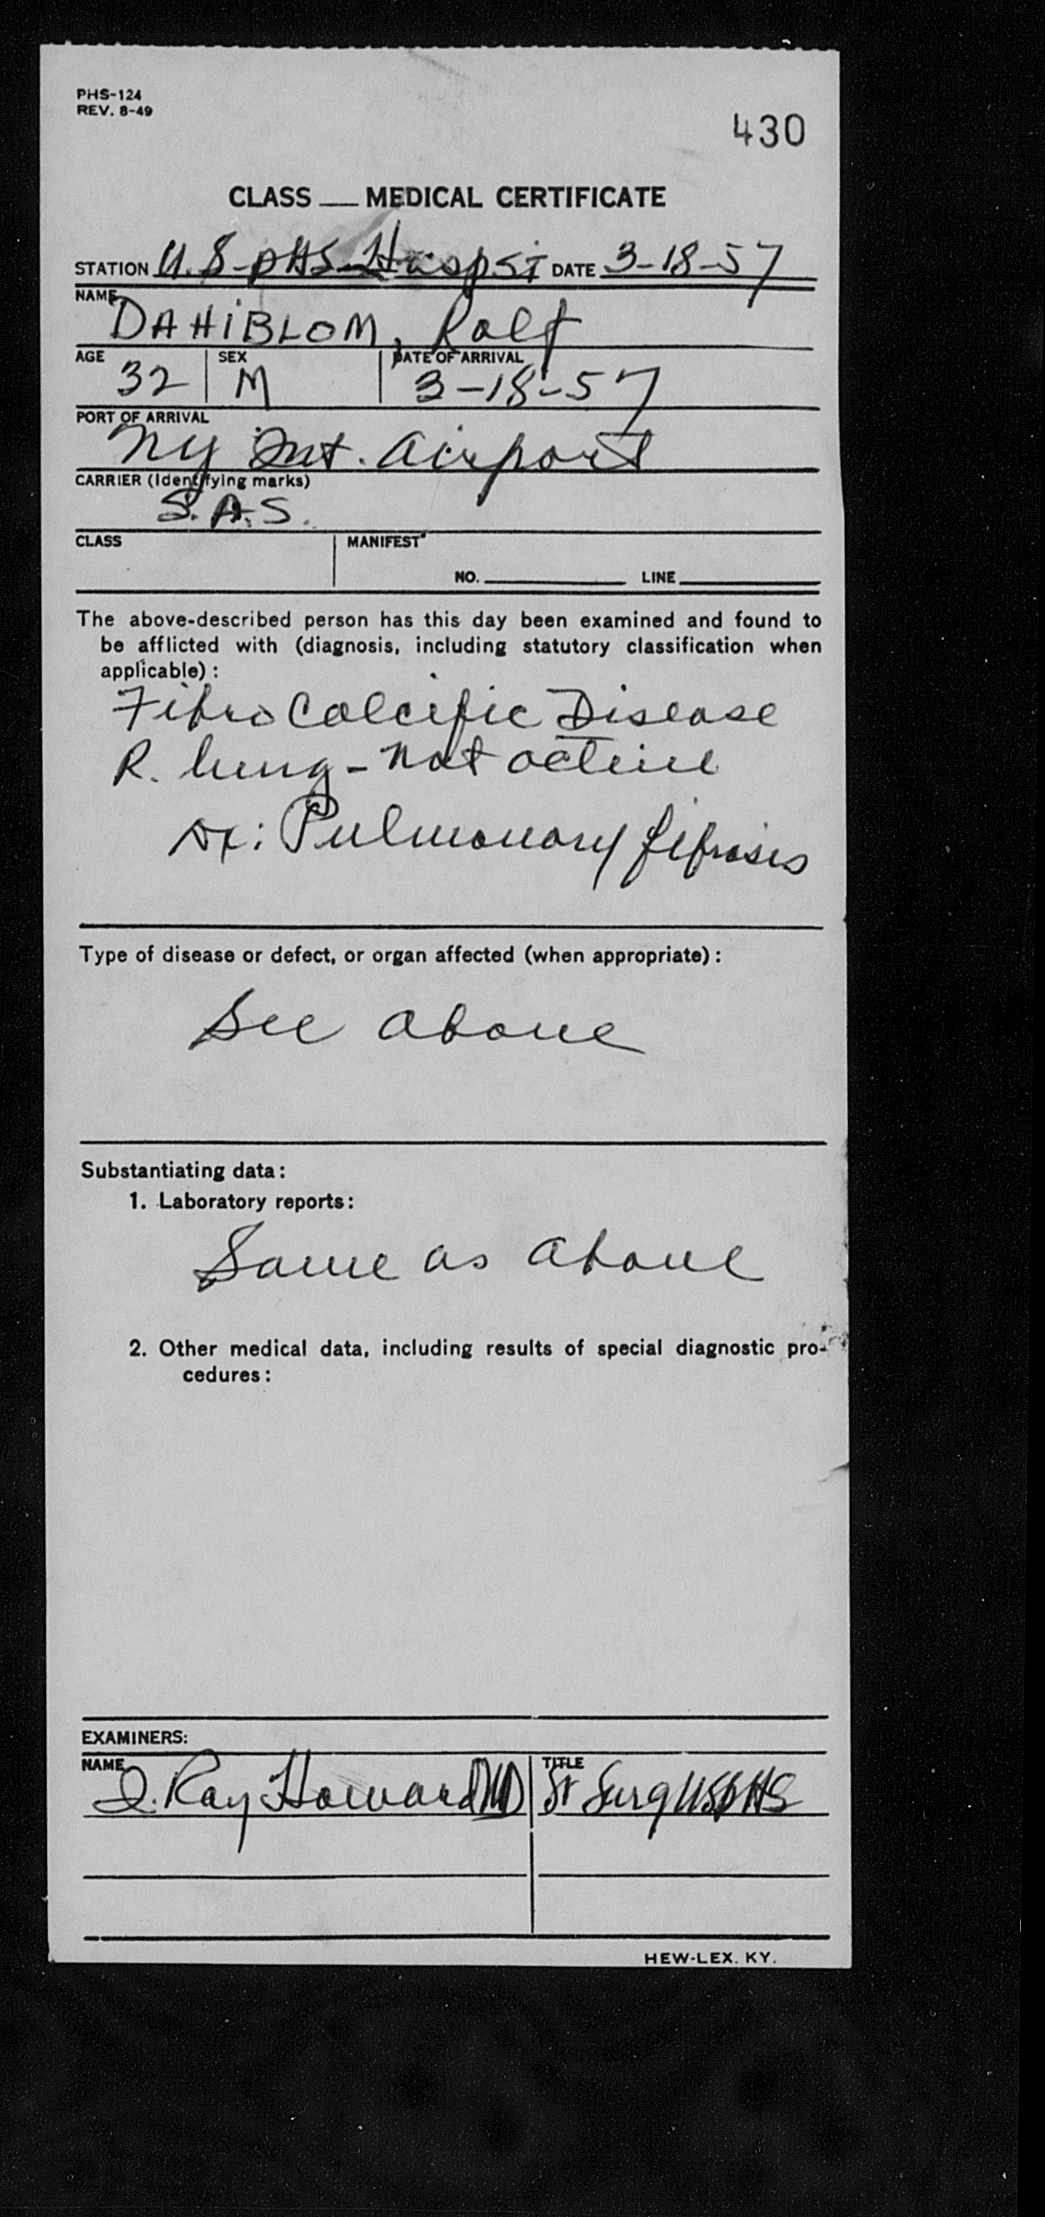 PHS-124
REV. 8-49
430
CLASS __ MEDICAL CERTIFICATE
STATION U.S-PHS-Hosp.SI DATE 3-18-57
NAME
DAHiBLOM, Rolf
AGE 32 SEX M DATE OF ARRIVAL 3-18-57
PORT OF ARRIVAL
NY Int. Airport
CARRIER (Identifying marks)
S.A.S.
CLASS MANIFEST
NO. ____ LINE ____
The above-described person has this day been examined and found to
be afflicted with (diagnosis, including statutory classification when
applicable):
Fibro Calcific Disease
R. lung - not active
Dx: Pulmonary fibrosis
Type of disease or defect, or organ affected (when appropriate):
See above
Substantiating data:
1. Laboratory reports:
Same as above
2. Other medical data, including results of special diagnostic pro-
cedures:
EXAMINERS:
NAME TITLE
Ray Howard MD Sr Surg USPHS
HEW-LEX. KY.